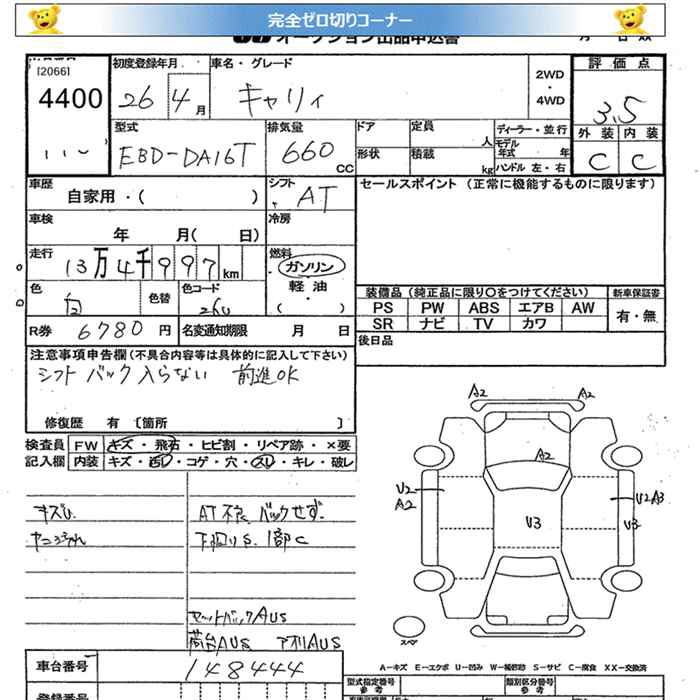 完全ゼロ切りコーナー
オークション出品申込書
[2066]
4400
初度登録年月
26年4月
車名・グレード
キャリィ
2WD
・
4WD
評価点
3.5
外装 内装
C C
型式
EBD-DA16T
排気量
660 CC
ドア
形状
定員 人
積載 kg
ディーラー・並行
モデル年式 年
ハンドル 左・右
車歴
自家用・( )
シフト
AT
セールスポイント (正常に機能するものに限ります)
車検
年 月( 日)
冷房
走行
13万4千997km
燃料
ガソリン
・
軽油
( )
色
白
色替
色コード
26U
R券 6780円
名変通知期限 月 日
装備品 (純正品に限り〇をつけてください)
新車保証書
PS PW ABS エアB AW
SR ナビ TV カワ
有・無
後日品
注意事項申告欄(不具合内容等は具体的に記入して下さい)
シフト バック入らない 前進OK
修復歴 有 〔箇所 〕
検査員記入欄
FW キズ・飛石・ヒビ割・リペア跡・×要
内装 キズ・汚レ・コゲ・穴・スレ・キレ・破レ
キズU
AT不良 バックせず
下回りS 1部C
セットバックAUS
荷台AUS アオリAUS
A2 A2
A2
U2
A2
U3
U2A3
U3
スペア
A-キズ E-エクボ U-凹み W-補修跡 S-サビ C-腐食 XX-交換済
車台番号
148444
型式指定番号
参考
類別区分番号
参考
登録番号